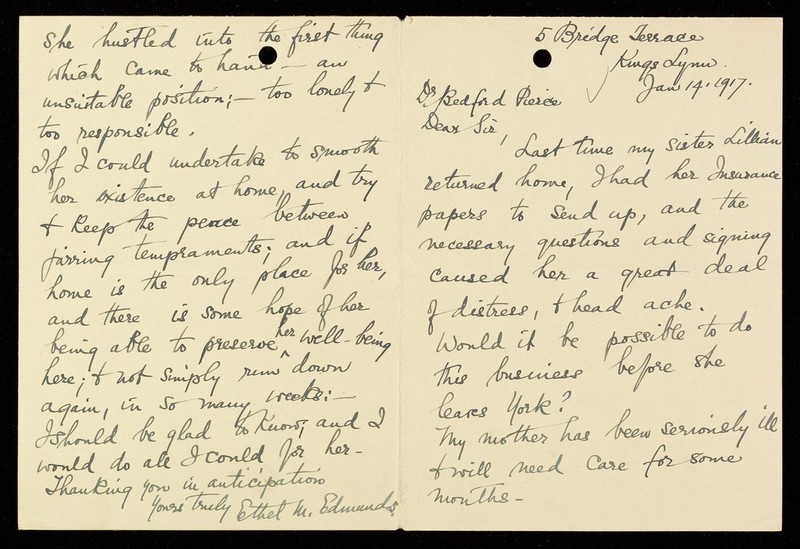 she hustled into the first thing
which came to hand – an
unsuitable position; – too lonely &
too responsible.
If I could undertake to smooth
her existence at home, and try
& keep the peace between
jarring tempraments; and if
home is the only place for her,
and there is some hope of her
being able to preserve her well-being
here; & not simply run down
again, in so many weeks: –
I should be glad to know; and I
would do all I could for her –
Thanking you in anticipation
Yours truly Ethel M. Edmunds.
5 Bridge Terrace
Kings Lynn.
Jan 14. 1917.
Dr Bedford Pierce
Dear Sir,
Last time my sister Lillian
returned home, I had her Insurance
papers to send up, and the
necessary questions and signing
caused her a great deal
of distress, & head ache.
Would it be possible to do
this business before she
leaves York?
My mother has been seriously ill
& will need care for some
months –